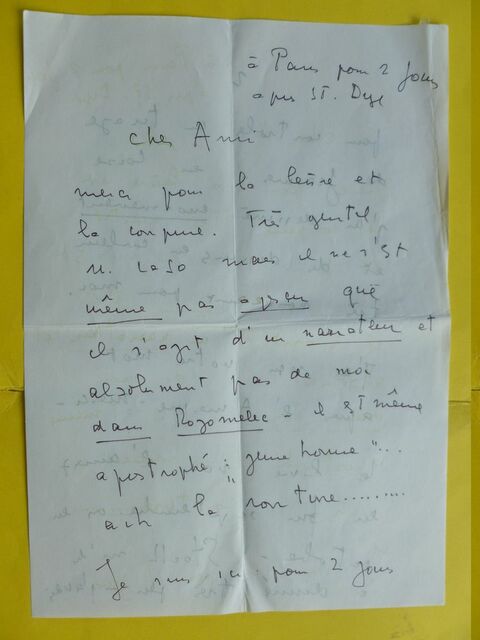 à Paris pour 2 jours
après ST. Dyé
cher Ami
merci pour la lettre et
la coupure. Très gentil
M. Laso mais il ne s'est
même pas aperçu que
il s'agit d'un narrateur et
absolument pas de moi
dans Rogomelec - il est même
apostrophé : "jeune homme"...
ach la routine.........
Je suis ici pour 2 jours